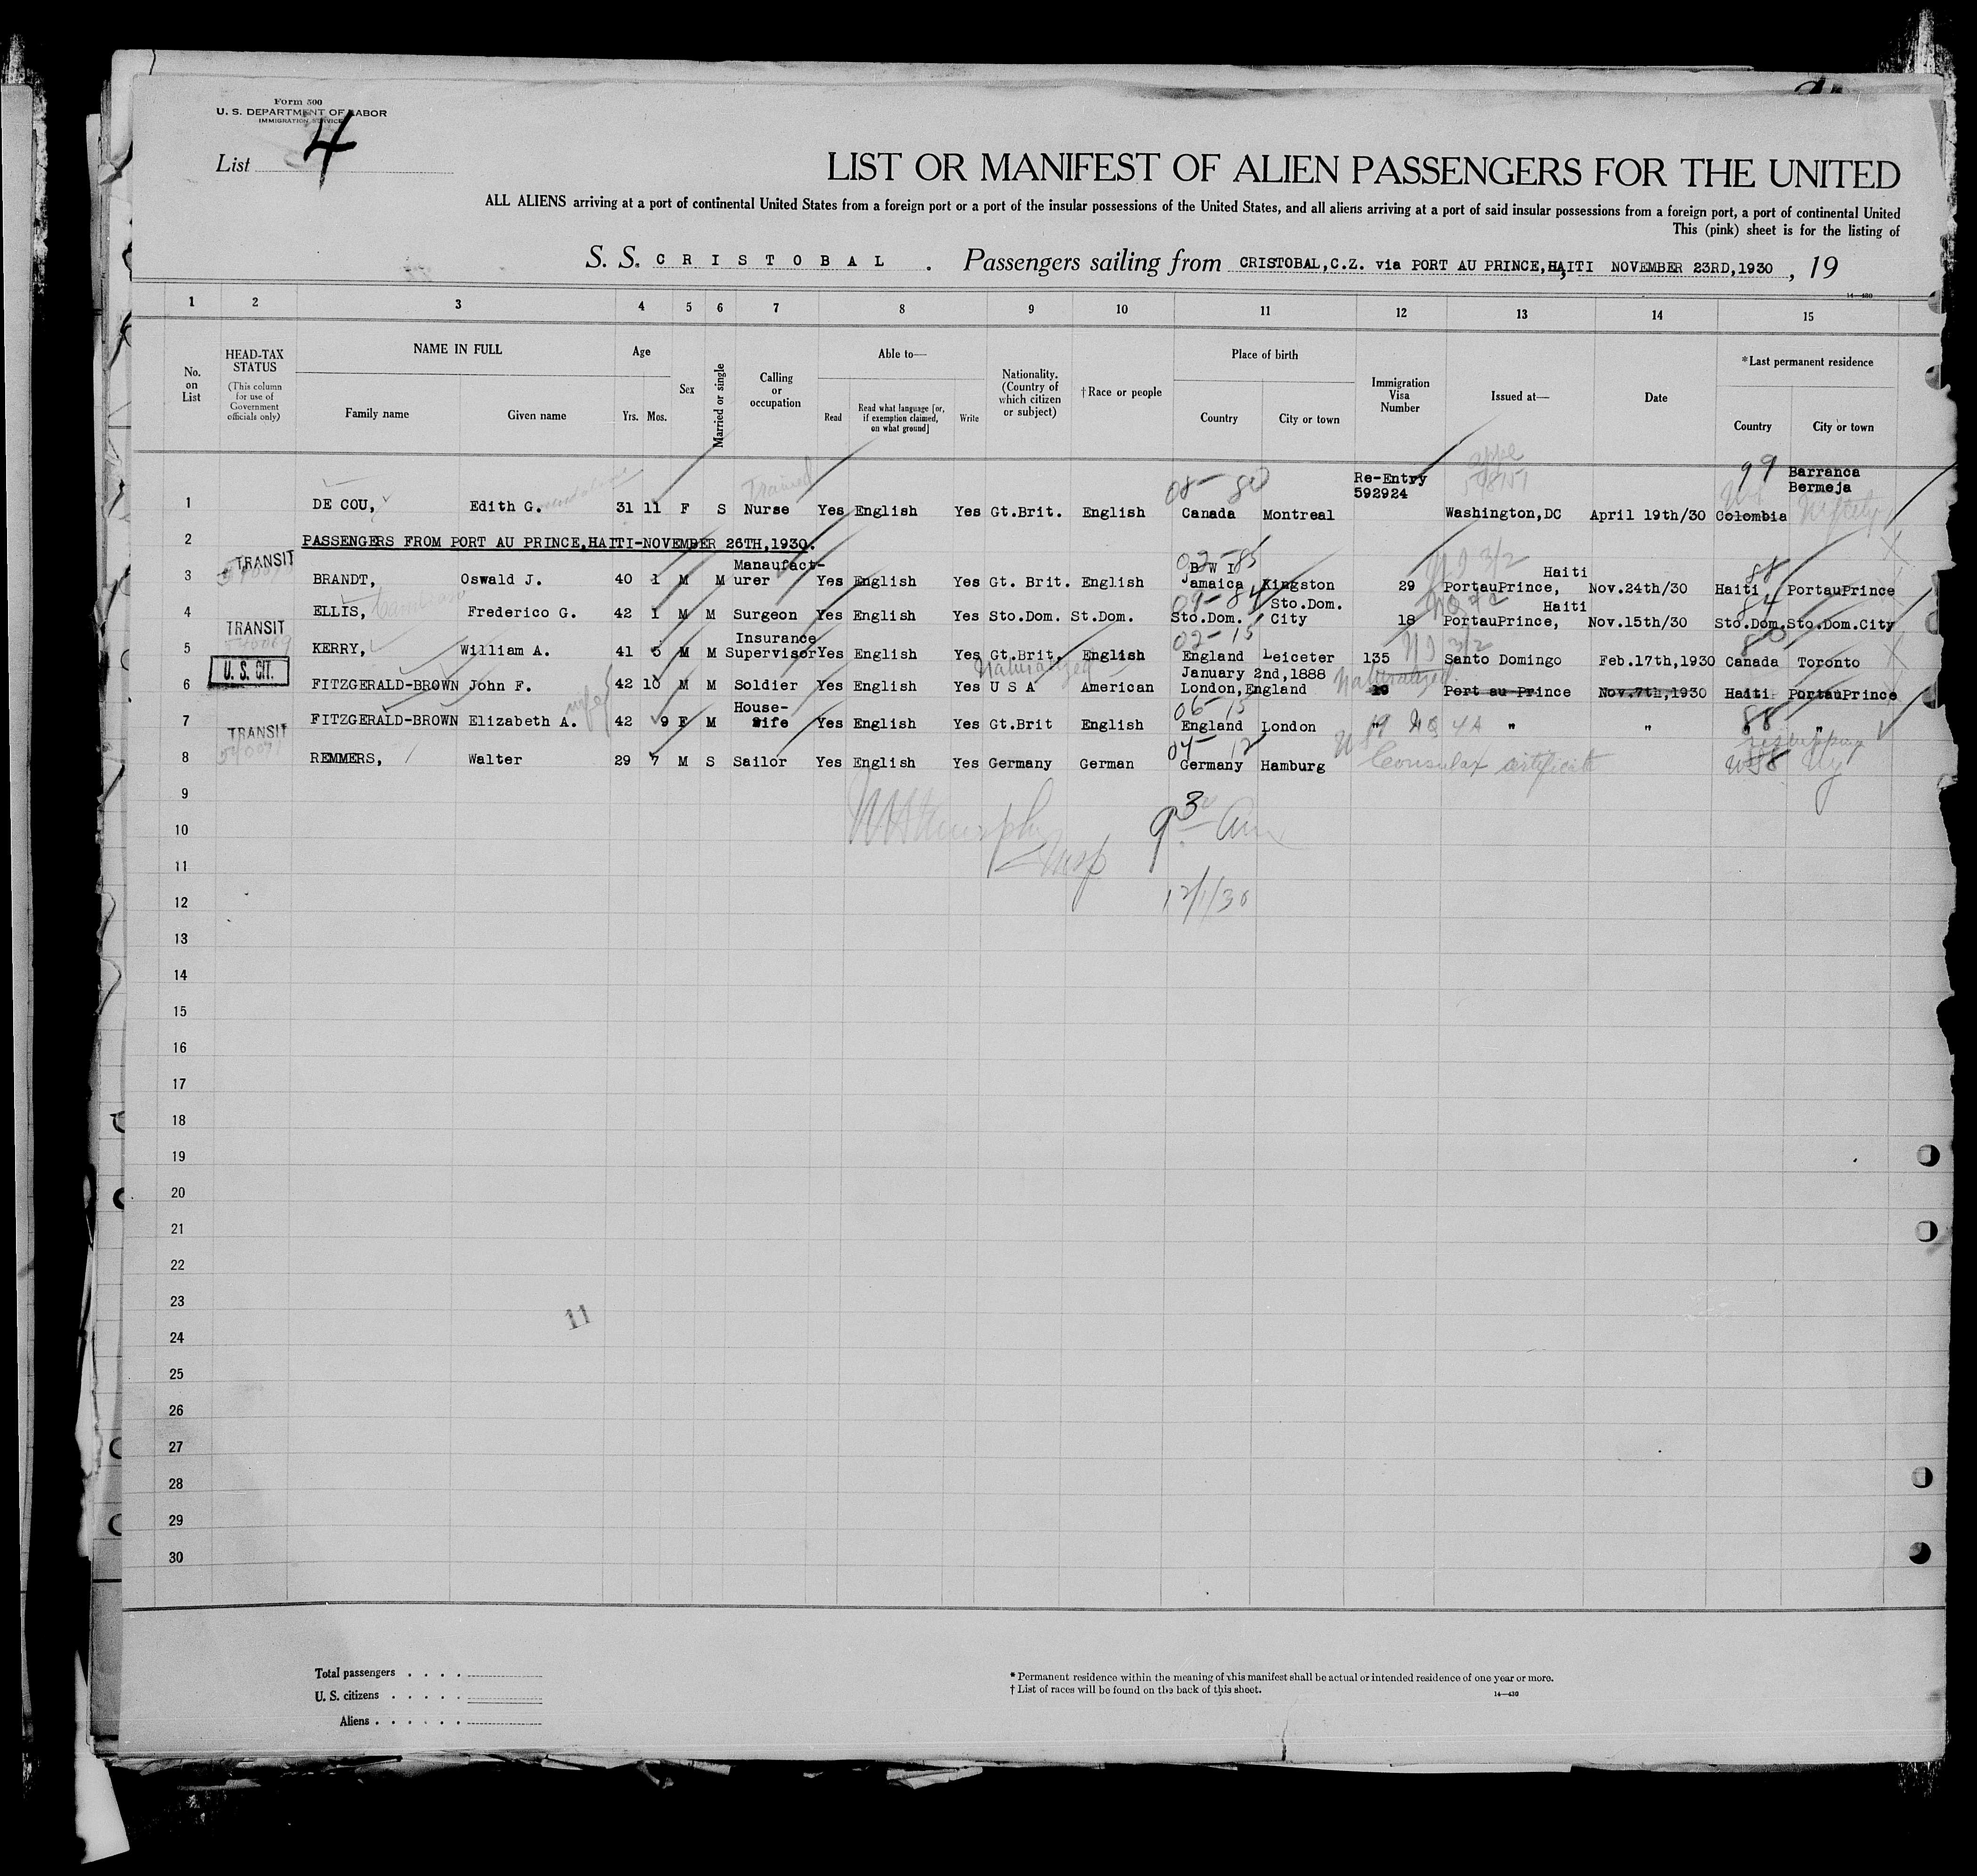 Form 500
U. S. DEPARTMENT OF LABOR
IMMIGRATION SERVICE
List 4
LIST OR MANIFEST OF ALIEN PASSENGERS FOR THE UNITED
ALL ALIENS arriving at a port of continental United States from a foreign port or a port of the insular possessions of the United States, and all aliens arriving at a port of said insular possessions from a foreign port, a port of continental United
This (pink) sheet is for the listing of
S. S. CRISTOBAL . Passengers sailing from CRISTOBAL,C.Z. via PORT AU PRINCE,HAITI NOVEMBER 23RD,1930 , 19
14—430
1 2 3 4 5 6 7 8 9 10 11 12 13 14 15
No. on List
HEAD-TAX STATUS
(This column for use of Government officials only)
NAME IN FULL
Family name Given name
Age
Yrs. Mos.
Sex
Married or single
Calling or occupation
Able to—
Read Read what language [or, if exemption claimed, on what ground] Write
Nationality. (Country of which citizen or subject)
†Race or people
Place of birth
Country City or town
Immigration Visa Number
Issued at—
Date
*Last permanent residence
Country City or town
08-80 Re-Entry 99 Barranca
Trained 592924 Bermeja
1 DE COU, Edith G. 31 11 F S Nurse Yes English Yes Gt.Brit. English Canada Montreal Washington,DC April 19th/30 Colombia
2 PASSENGERS FROM PORT AU PRINCE,HAITI-NOVEMBER 26TH,1930.
TRANSIT Manaufact- 02-85 B W I Haiti 88
3 BRANDT, Oswald J. 40 1 M M urer Yes English Yes Gt. Brit. English Jamaica Kingston 29 PortauPrince, Nov.24th/30 Haiti PortauPrince
09-84 Sto.Dom. Haiti 84
4 ELLIS, Frederico G. 42 1 M M Surgeon Yes English Yes Sto.Dom. St.Dom. Sto.Dom. City 18 PortauPrince, Nov.15th/30 Sto.Dom. Sto.Dom.City
TRANSIT Insurance 02-15 80
5 KERRY, William A. 41 5 M M Supervisor Yes English Yes Gt.Brit. English England Leiceter 135 Santo Domingo Feb.17th,1930 Canada Toronto
U. S. CIT. Naturalized January 2nd,1888 Naturalized.
6 FITZGERALD-BROWN John F. 42 10 M M Soldier Yes English Yes U S A American London,England 19 Port au Prince Nov.7th,1930 Haiti PortauPrince
wife House- 06-15 88
7 FITZGERALD-BROWN Elizabeth A. 42 9 F M Wife Yes English Yes Gt.Brit English England London " 19 NQ 4A " " "
TRANSIT 04-12
8 REMMERS, Walter 29 7 M S Sailor Yes English Yes Germany German Germany Hamburg Consular certificate
9
10
11
12 12/1/30
13
14
15
16
17
18
19
20
21
22
23
11
24
25
26
27
28
29
30
Total passengers . . . .
U. S. citizens . . . . .
Aliens . . . . . .
* Permanent residence within the meaning of this manifest shall be actual or intended residence of one year or more.
† List of races will be found on the back of this sheet.
14—430